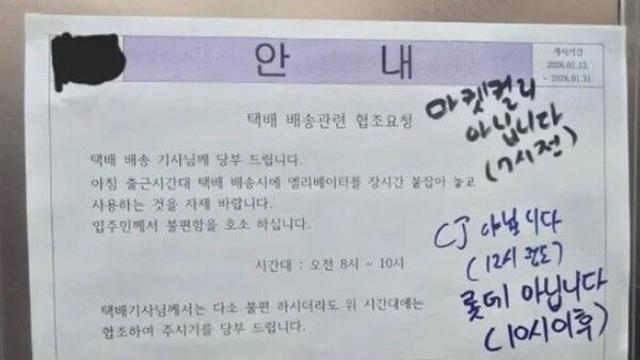 안 내
게시기간
2026.01.13.
~ 2026.01.31
택배 배송관련 협조요청
마켓컬리
아닙니다
(7시전)
택배 배송 기사님께 당부 드립니다.
아침 출근시간대 택배 배송시에 엘리베이터를 장시간 붙잡아 놓고
사용하는 것을 자제 바랍니다.
입주민께서 불편함을 호소 하십니다.
시간대 : 오전 8시 ~ 10시
CJ 아닙니다
(12시 정도)
롯데 아닙니다
(10시이후)
택배기사님께서는 다소 불편 하시더라도 위 시간대에는
협조하여 주시기를 당부 드립니다.